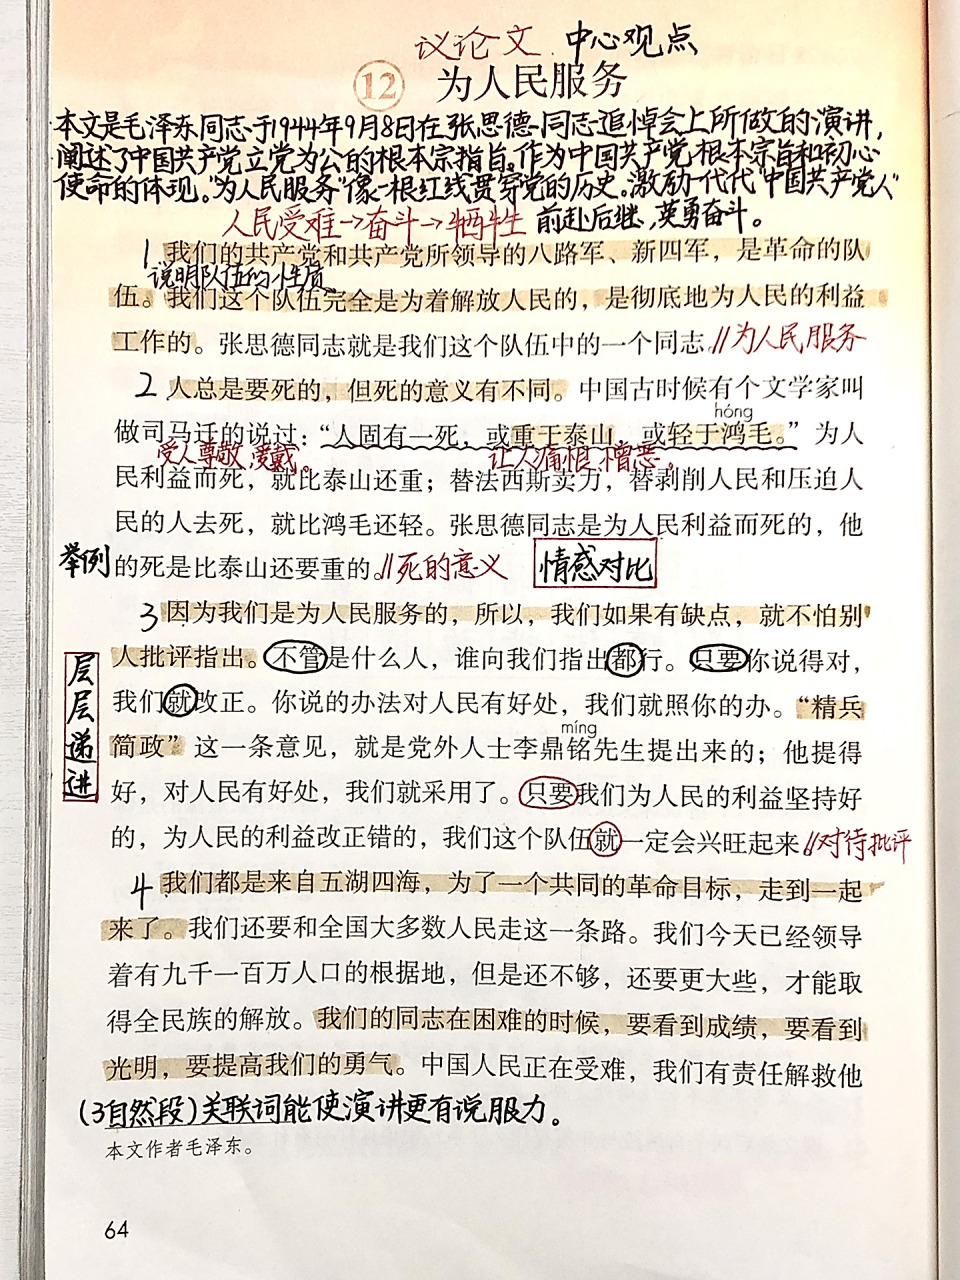 议论文 中心观点
12 为人民服务
本文是毛泽东同志于1944年9月8日在张思德同志追悼会上所做的演讲,
阐述了中国共产党立党为公的根本宗指旨。作为中国共产党根本宗旨和初心
使命的体现。“为人民服务”像一根红线贯穿党的历史。激励一代代“中国共产党人”
人民受难→奋斗→牺牲 前赴后继,英勇奋斗。
1 我们的共产党和共产党所领导的八路军、新四军，是革命的队
说明队伍的性质
伍。我们这个队伍完全是为着解放人民的，是彻底地为人民的利益
工作的。张思德同志就是我们这个队伍中的一个同志。//为人民服务
2 人总是要死的，但死的意义有不同。中国古时候有个文学家叫
hóng
做司马迁的说过：“人固有一死，或重于泰山，或轻于鸿毛。”为人
受人尊敬,爱戴。 让人痛恨,憎恶。
民利益而死，就比泰山还重；替法西斯卖力，替剥削人民和压迫人
民的人去死，就比鸿毛还轻。张思德同志是为人民利益而死的，他
举例 的死是比泰山还要重的。//死的意义 情感对比
3 因为我们是为人民服务的，所以，我们如果有缺点，就不怕别
人批评指出。不管是什么人，谁向我们指出都行。只要你说得对，
层层递进
我们就改正。你说的办法对人民有好处，我们就照你的办。“精兵
míng
简政”这一条意见，就是党外人士李鼎铭先生提出来的；他提得
好，对人民有好处，我们就采用了。只要我们为人民的利益坚持好
的，为人民的利益改正错的，我们这个队伍就一定会兴旺起来。//对待批评
4 我们都是来自五湖四海，为了一个共同的革命目标，走到一起
来了。我们还要和全国大多数人民走这一条路。我们今天已经领导
着有九千一百万人口的根据地，但是还不够，还要更大些，才能取
得全民族的解放。我们的同志在困难的时候，要看到成绩，要看到
光明，要提高我们的勇气。中国人民正在受难，我们有责任解救他
(3自然段)关联词能使演讲更有说服力。
本文作者毛泽东。
64